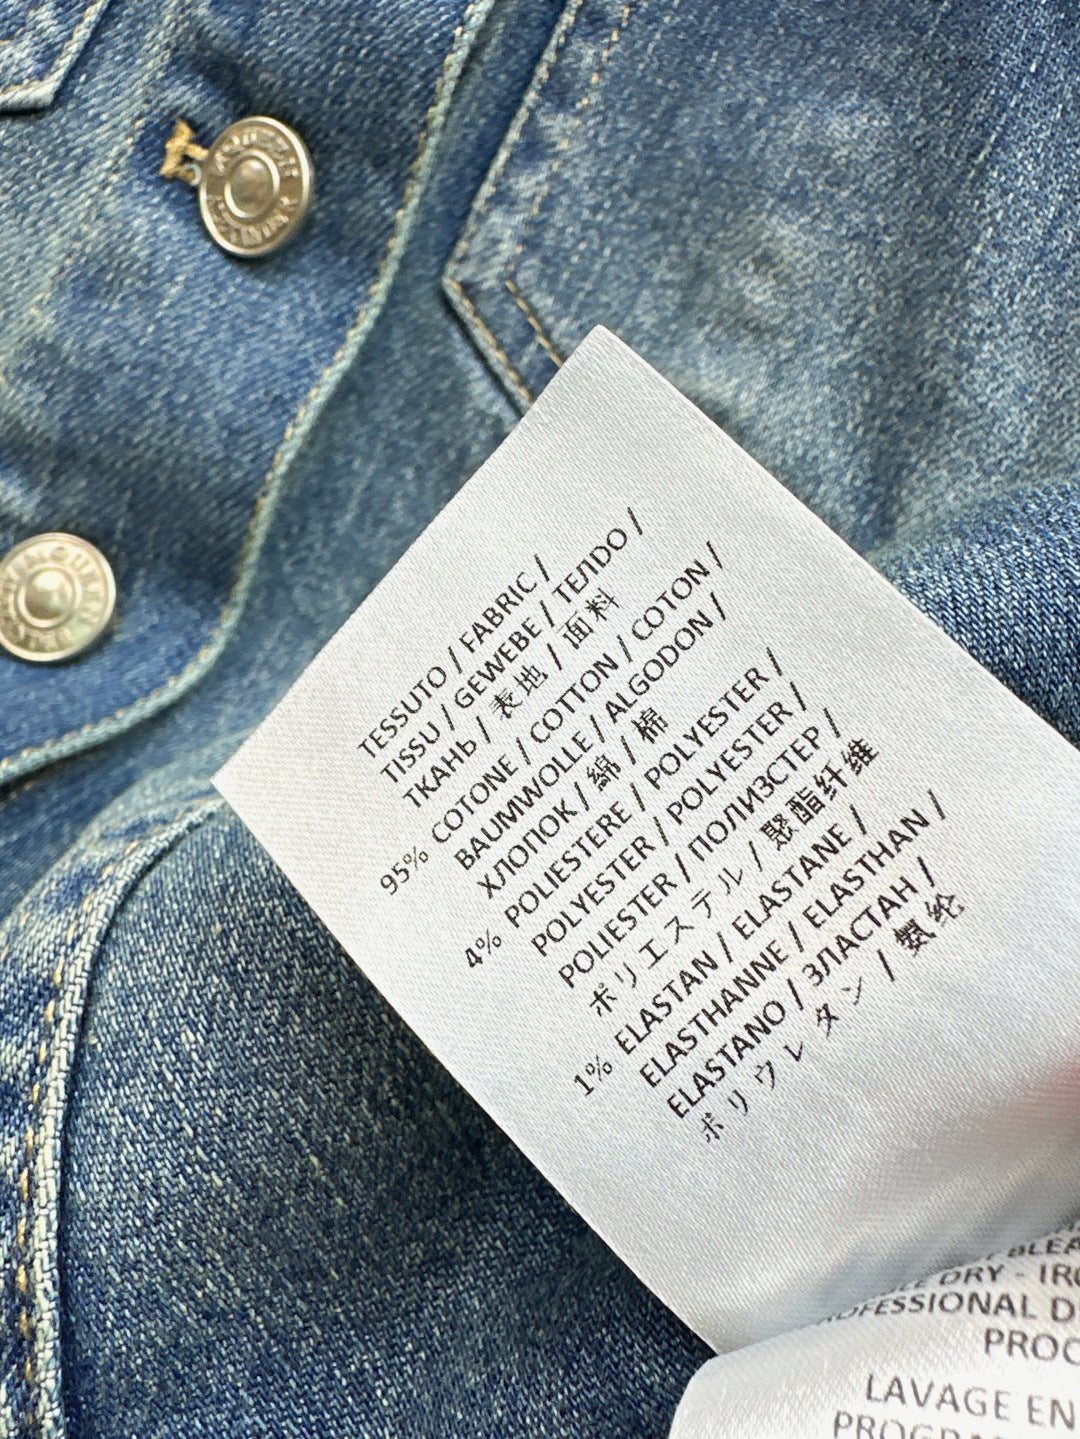 TESSUTO / FABRIC /
TISSU / GEWEBE / ТЕЛDО /
ТКАНЬ / 表地 / 面料
95% COTONE / COTTON / COTON /
BAUMWOLLE / ALGODON /
ХЛОПОК / 綿 / 棉
4% POLIESTERE / POLYESTER /
POLYESTER / POLYESTER /
POLIESTER / ПОЛИЗСТЕР /
ポリエステル / 聚酯纤维
1% ELASTAN / ELASTANE /
ELASTHANNE / ELASTHAN /
ELASTANO / ЗЛАСТАН /
ポリウレタン / 氨纶
DRY - IRO
PROFESSIONAL D
PROC
LAVAGE EN